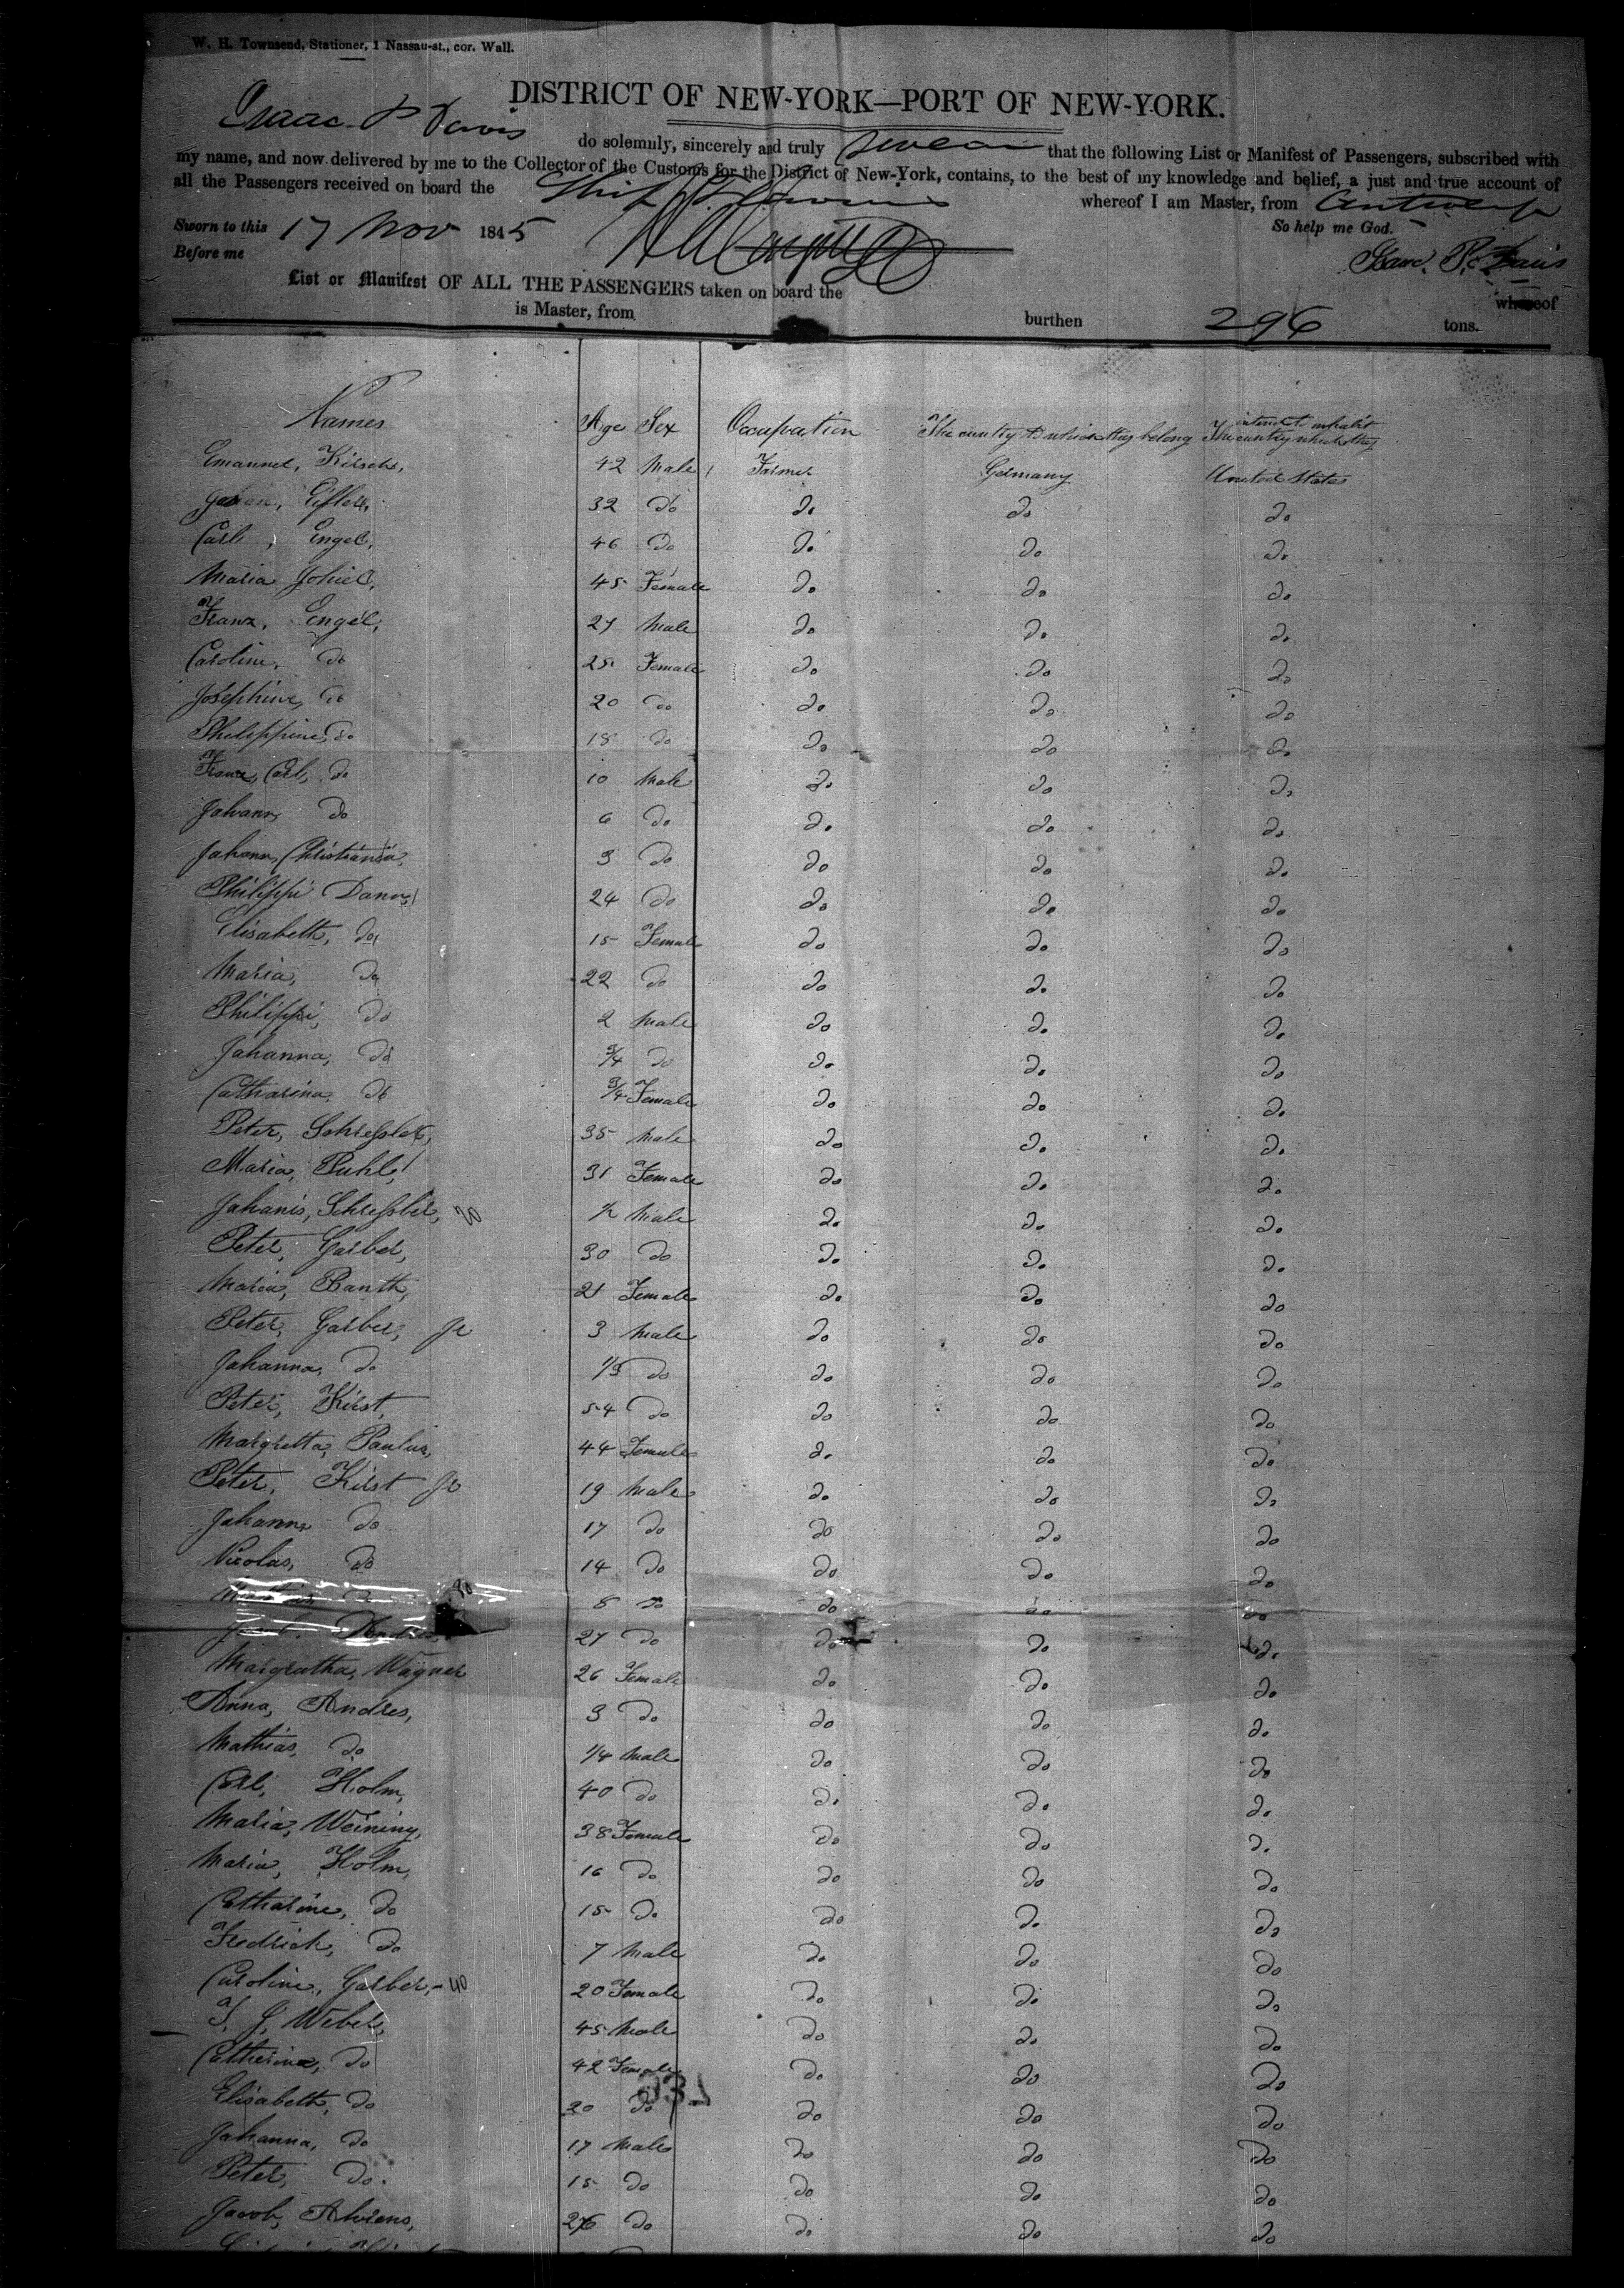 W. H. Townsend, Stationer, 1 Nassau-st., cor. Wall.
DISTRICT OF NEW-YORK—PORT OF NEW-YORK.
Isaac P Davis do solemnly, sincerely and truly swear that the following List or Manifest of Passengers, subscribed with
my name, and now delivered by me to the Collector of the Customs for the District of New-York, contains, to the best of my knowledge and belief, a just and true account of
all the Passengers received on board the Ship whereof I am Master, from Antwerp
Sworn to this 17 Nov 1845 So help me God.
Before me Isaac. P. Davis
List or Manifest OF ALL THE PASSENGERS taken on board the whereof
is Master, from burthen 296 tons.
Names Age Sex Occupation The country to which they belong The country which they intend to inhabit
Emanuel, Kirsch, 42 Male Farmer Germany United States
32 do do do do
Carl, Engel, 46 do do do do
Maria 45 Female do do do
Franz, Engel, 27 Male do do do
Caroline, do 25 Female do do do
Josephine, do 20 do do do do
Philippine, do 18 do do do do
Franz, Carl, do 10 Male do do do
Johann, do 6 do do do do
Johann, 3 do do do do
Philippi 24 do do do do
Elisabeth, do 15 Female do do do
Maria, do 22 do do do do
Philippi, do 2 Male do do do
Johanna, do 3/4 do do do do
Catharina, do 3/4 Female do do do
Peter, Schressler, 35 Male do do do
Maria, Puhl, 31 Female do do do
Johanis, Schressler, 20 ½ Male do do do
Peter, Garber, 30 do do do do
Maria, Banth, 21 Female do do do
Peter, Garber, Jr 3 Male do do do
Johanna, do 1/3 do do do do
Peter, Kirst, 54 do do do do
Margretta, Paulus, 44 Female do do do
Peter, Kirst Jr 19 Male do do do
Johann, do 17 do do do do
Nicolas, do 14 do do do do
30 8 do do do do
Andres, 27 do do do do
Margretha, Wagner 26 Female do do do
Anna, Andres, 3 do do do do
Mathias, do 1/4 Male do do do
Carl, Holm, 40 do do do do
Maria, Weining, 38 Female do do do
Maria, Holm, 16 do do do do
Catharine, do 15 do do do do
Fredrich, do 7 Male do do do
Caroline, Garber, - 40 20 Female do do do
Weber, 45 Male do do do
Catherina, do 42 Female do do do
Elisabeth, do 20 do do do do
Johanna, do 17 Male do do do
Peter, do 15 do do do do
Jacob, Ahrens, 26 do do do do